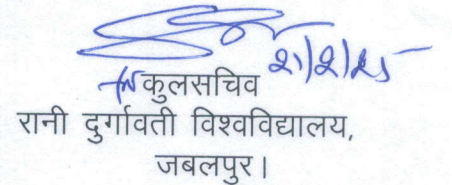 कुलसचिव
रानी दुर्गावती विश्वविद्यालय,
जबलपुर।